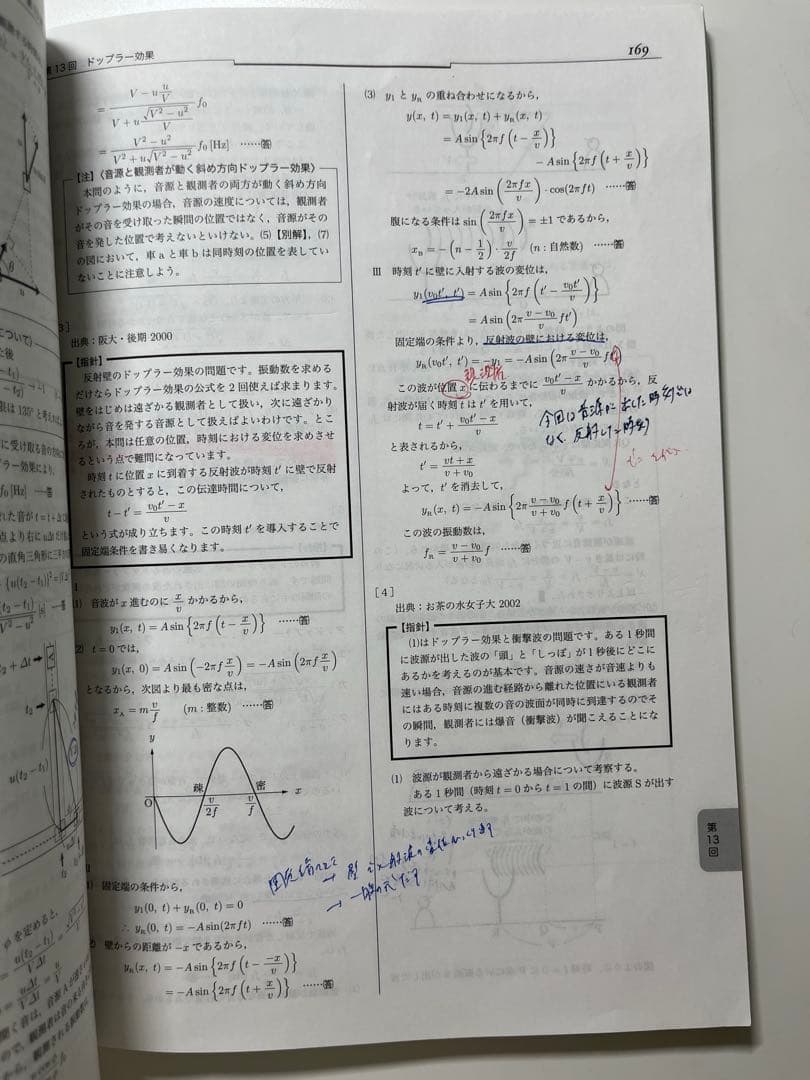 第13回 ドップラー効果
169
= (V − u u/V) / (V + u √(V² − u²)/V) f₀
= (V² − u²) / (V² + u√(V² − u²)) f₀ [Hz] ……答
【注】〈音源と観測者が動く斜め方向ドップラー効果〉
本問のように，音源と観測者の両方が動く斜め方向
ドップラー効果の場合，音源の速度については，観測者
がその音を受け取った瞬間の位置ではなく，音源がその
音を発した位置で考えないといけない。(5)【別解】，(7)
の図において，車aと車bは同時刻の位置を表してい
ないことに注意しよう。
3]
出典：阪大・後期 2000
【指針】
反射壁のドップラー効果の問題です。振動数を求める
だけならドップラー効果の公式を2回使えば求まります。
壁をはじめは遠ざかる観測者として扱い，次に遠ざかり
ながら音を発する音源として扱えばよいわけです。とこ
ろが，本問は任意の位置，時刻における変位を求めさせ
るという点で難問になっています。
時刻 t に位置 x に到着する反射波が時刻 t′ に壁で反射
されたものとすると，この伝達時間について，
t − t′ = (v₀t′ − x)/v
という式が成り立ちます。この時刻 t′ を導入することで
固定端条件を書き易くなります。
I
1) 音波が x 進むのに x/v かかるから，
y₁(x, t) = A sin{2πf(t − x/v)} ……答
2) t = 0 では，
y₁(x, 0) = A sin(−2πf x/v) = −A sin(2πf x/v)
となるから，次図より最も密な点は，
x_A = m v/f (m：整数) ……答
y
疎
密
O
v/2f
v/f
x
固定端の条件から，
y₁(0, t) + y_R(0, t) = 0
∴ y_R(0, t) = −A sin(2πft) ……答
壁からの距離が −x であるから，
y_R(x, t) = −A sin{2πf(t − −x/v)}
= −A sin{2πf(t + x/v)} ……答
(3) y₁ と y_R の重ね合わせになるから，
y(x, t) = y₁(x, t) + y_R(x, t)
= A sin{2πf(t − x/v)}
− A sin{2πf(t + x/v)}
= −2A sin(2πfx/v)・cos(2πft) ……答
腹になる条件は sin(2πfx/v) = ±1 であるから，
x_B = −(n − 1/2)・v/2f (n：自然数) ……答
III 時刻 t′ に壁に入射する波の変位は，
y₁(v₀t′, t′) = A sin{2πf(t′ − v₀t′/v)}
= A sin(2π (v − v₀)/v ft′)
固定端の条件より，反射波の壁における変位は，
y_R(v₀t′, t′) = −y₁ = −A sin(2π (v − v₀)/v ft′)
この波が位置 x に伝わるまでに (v₀t′ − x)/v かかるから，反
射波が届く時刻 t は t′ を用いて，
t = t′ + (v₀t′ − x)/v
今回は音源が出した時刻では
なく 反射した時刻
と表されるから，
t′ = (vt + x)/(v + v₀)
よって，t′ を消去して，
y_R(x, t) = −A sin{2π (v − v₀)/(v + v₀) f(t + x/v)} ……答
この波の振動数は，
f_R = (v − v₀)/(v + v₀) f ……答
[4]
出典：お茶の水女子大 2002
【指針】
(1)はドップラー効果と衝撃波の問題です。ある1秒間
に波源が出した波の「頭」と「しっぽ」が1秒後にどこに
あるかを考えるのが基本です。音源の速さが音速よりも
速い場合，音源の進む経路から離れた位置にいる観測者
にはある時刻に複数の音の波面が同時に到達するのでそ
の瞬間，観測者には爆音（衝撃波）が聞こえることにな
ります。
(1) 波源が観測者から遠ざかる場合について考察する。
ある1秒間（時刻 t = 0 から t = 1 の間）に波源 S が出す
波について考える。
第13回